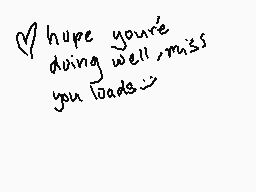 ♡ hope you're
doing well, miss
you loads :)